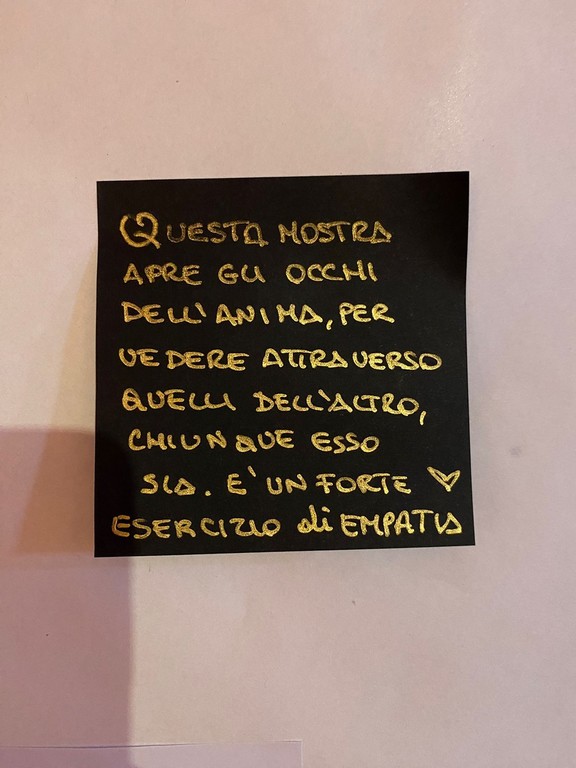 QUESTA MOSTRA
APRE GLI OCCHI
DELL'ANIMA, PER
VEDERE ATTRAVERSO
QUELLI DELL'ALTRO,
CHIUNQUE ESSO
SIA. E' UN FORTE ♡
ESERCIZIO di EMPATIA